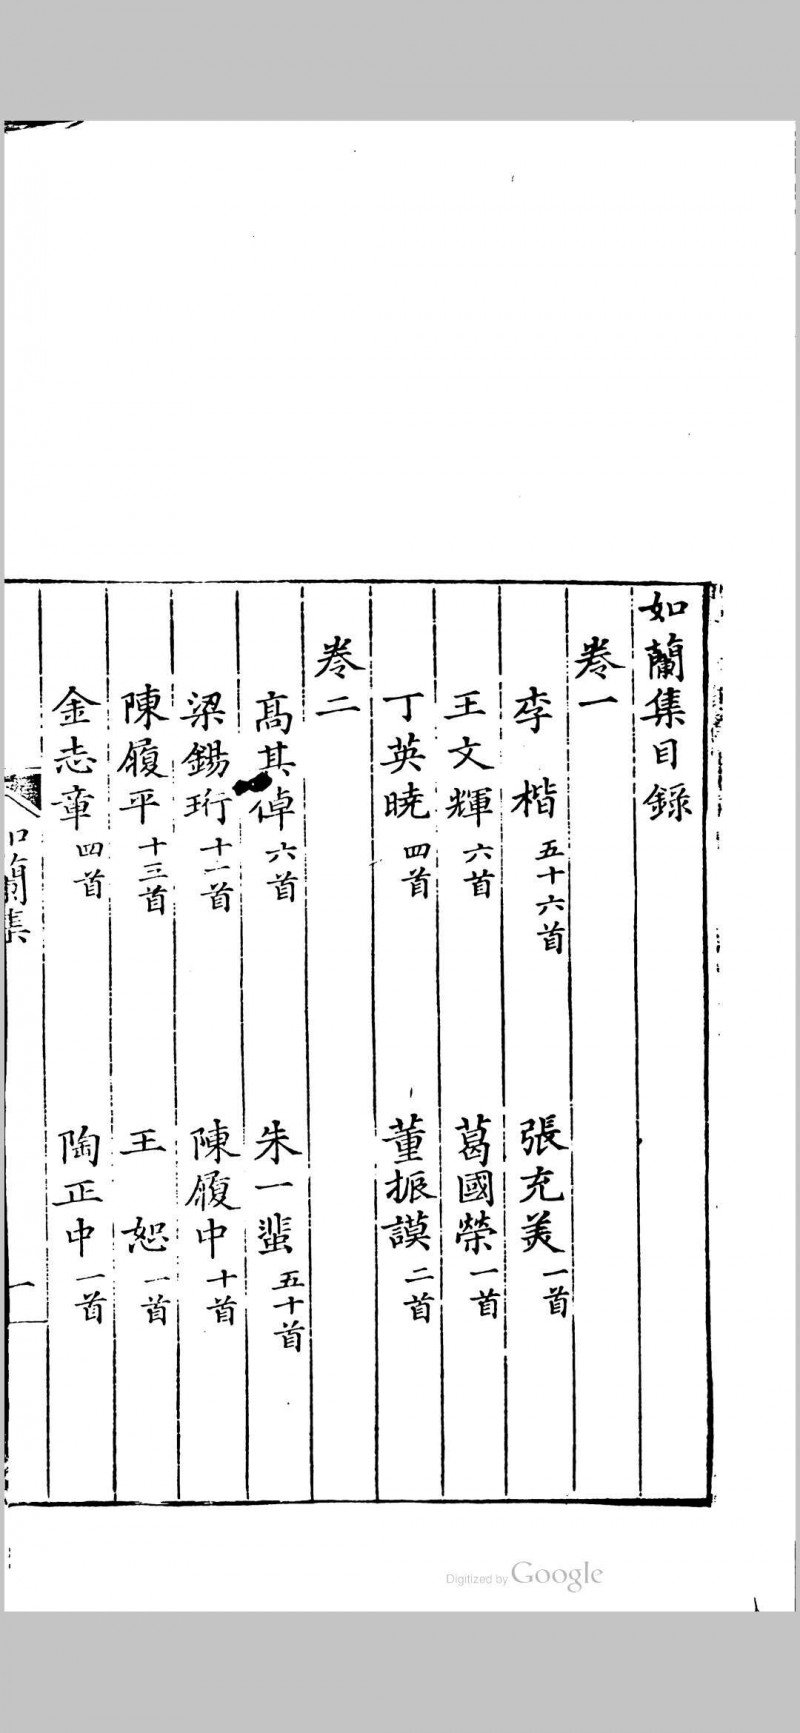 如蘭集目錄
卷一
李楷 五十六首 張充美 一首
王文輝 六首 葛國榮 一首
丁英曉 四首 董振謨 二首
卷二
高其倬 六首 朱一蜚 五十首
梁錫珩 十一首 陳履中 十首
陳履平 十三首 王恕 一首
金志章 四首 陶正中 一首
如蘭集 一
Digitized by Google